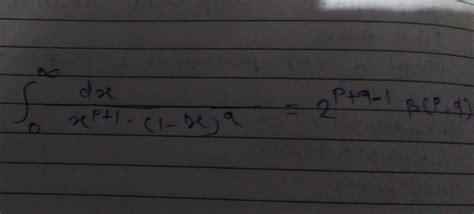 ∫₀^∞ dx / (x^{p+1} · (1-x)^q) = 2^{p+q-1} β(p,q)